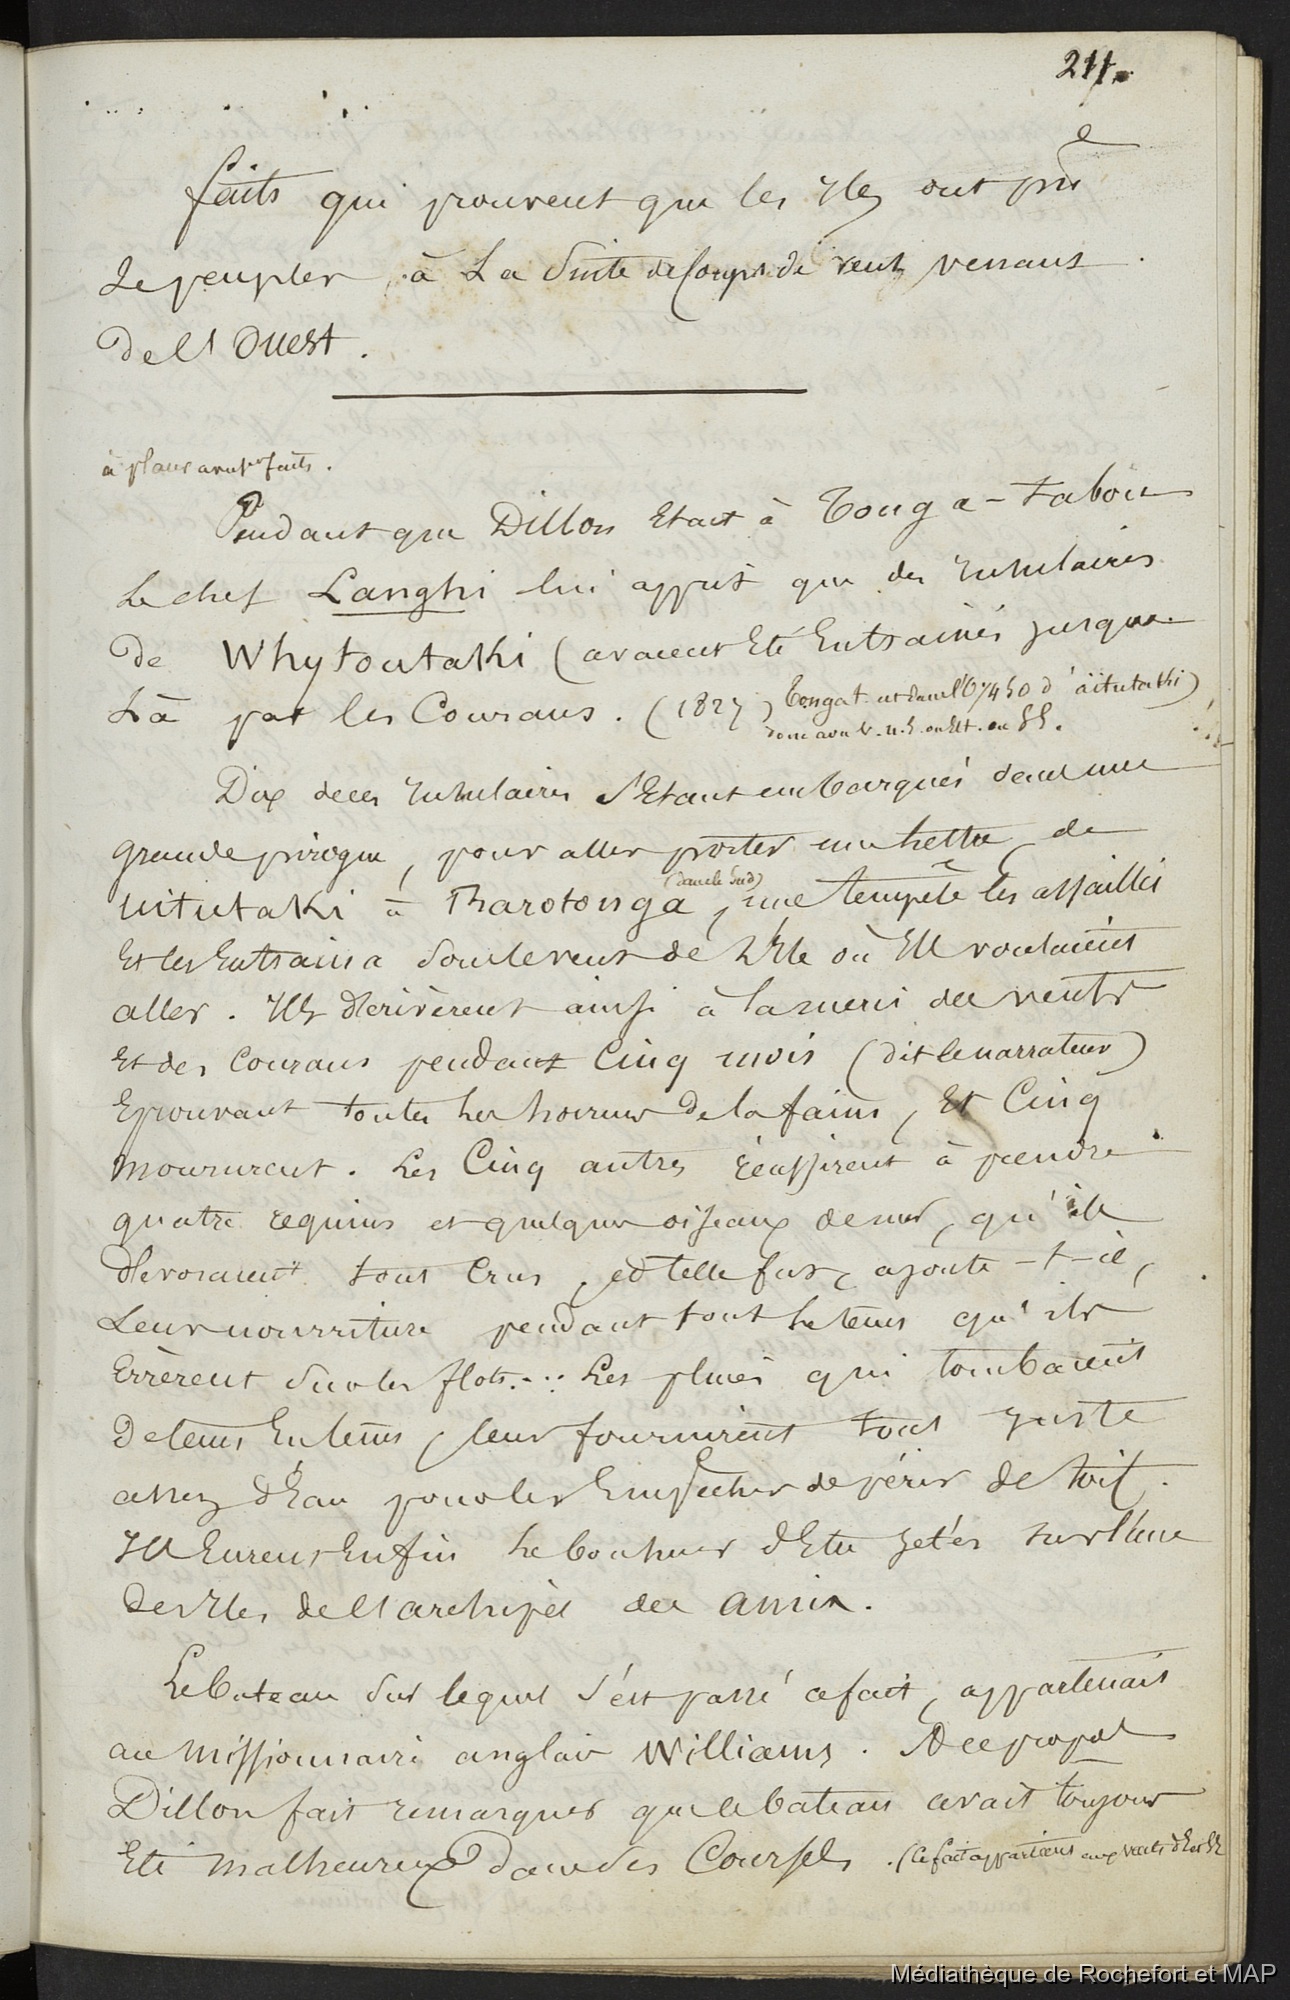 211.
faits qui prouvent que les Iles ont pû
se peupler à La Suite de Coups de vents venant
de l'Ouest.
à placer avant faits.
Pendant que Dillon Etait à Tonga-Tabou
Le chef Langhi lui apprit que des Insulaires
de Whytoutaki (avaient Eté Entrainés jusque
Là par les Courans. (1827) Tonga t. est dans l'O d'aitutaki)
donc avec v. n. E. ou Est. ou SE.
Dix de ces Insulaires S'Etant embarqués dans une
grande pirogue, pour aller porter une Lettre de
aitutaki à Rarotonga, une tempête les assaillit
(dans le Sud)
Et les Entraina Sous le vent de L'Ile où Ils voulaient
aller. Ils dérivèrent ainsi à la merci des vents
Et des Courans pendant Cinq mois (dit le narrateur)
Eprouvant toutes les horreurs de la faim, Et Cinq
moururent. Les Cinq autres réussirent à prendre
quatre requins et quelques oiseaux de mer, qu'ils
dévoraient tout Crus, et telle fut, ajoute-t-il,
Leur nourriture pendant tout le tems qu'ils
Errèrent Sur les flots.... Les pluies qui tombaient
De tems En tems, leur fournirent tout juste
assez d'Eau pour les Empêcher de périr de soif.
Ils Eurent Enfin le bonheur d'Etre jetés sur l'une
Des Iles de l'archipel des amis.
Le bateau Sur lequel s'est passé ce fait, appartenait
au missionnaire anglais Williams. A ce propos
Dillon fait remarquer que le bateau avait toujours
Eté malheureux dans ses Courses. (le fait appartient aux vents d'Est SE
Médiathèque de Rochefort et MAP